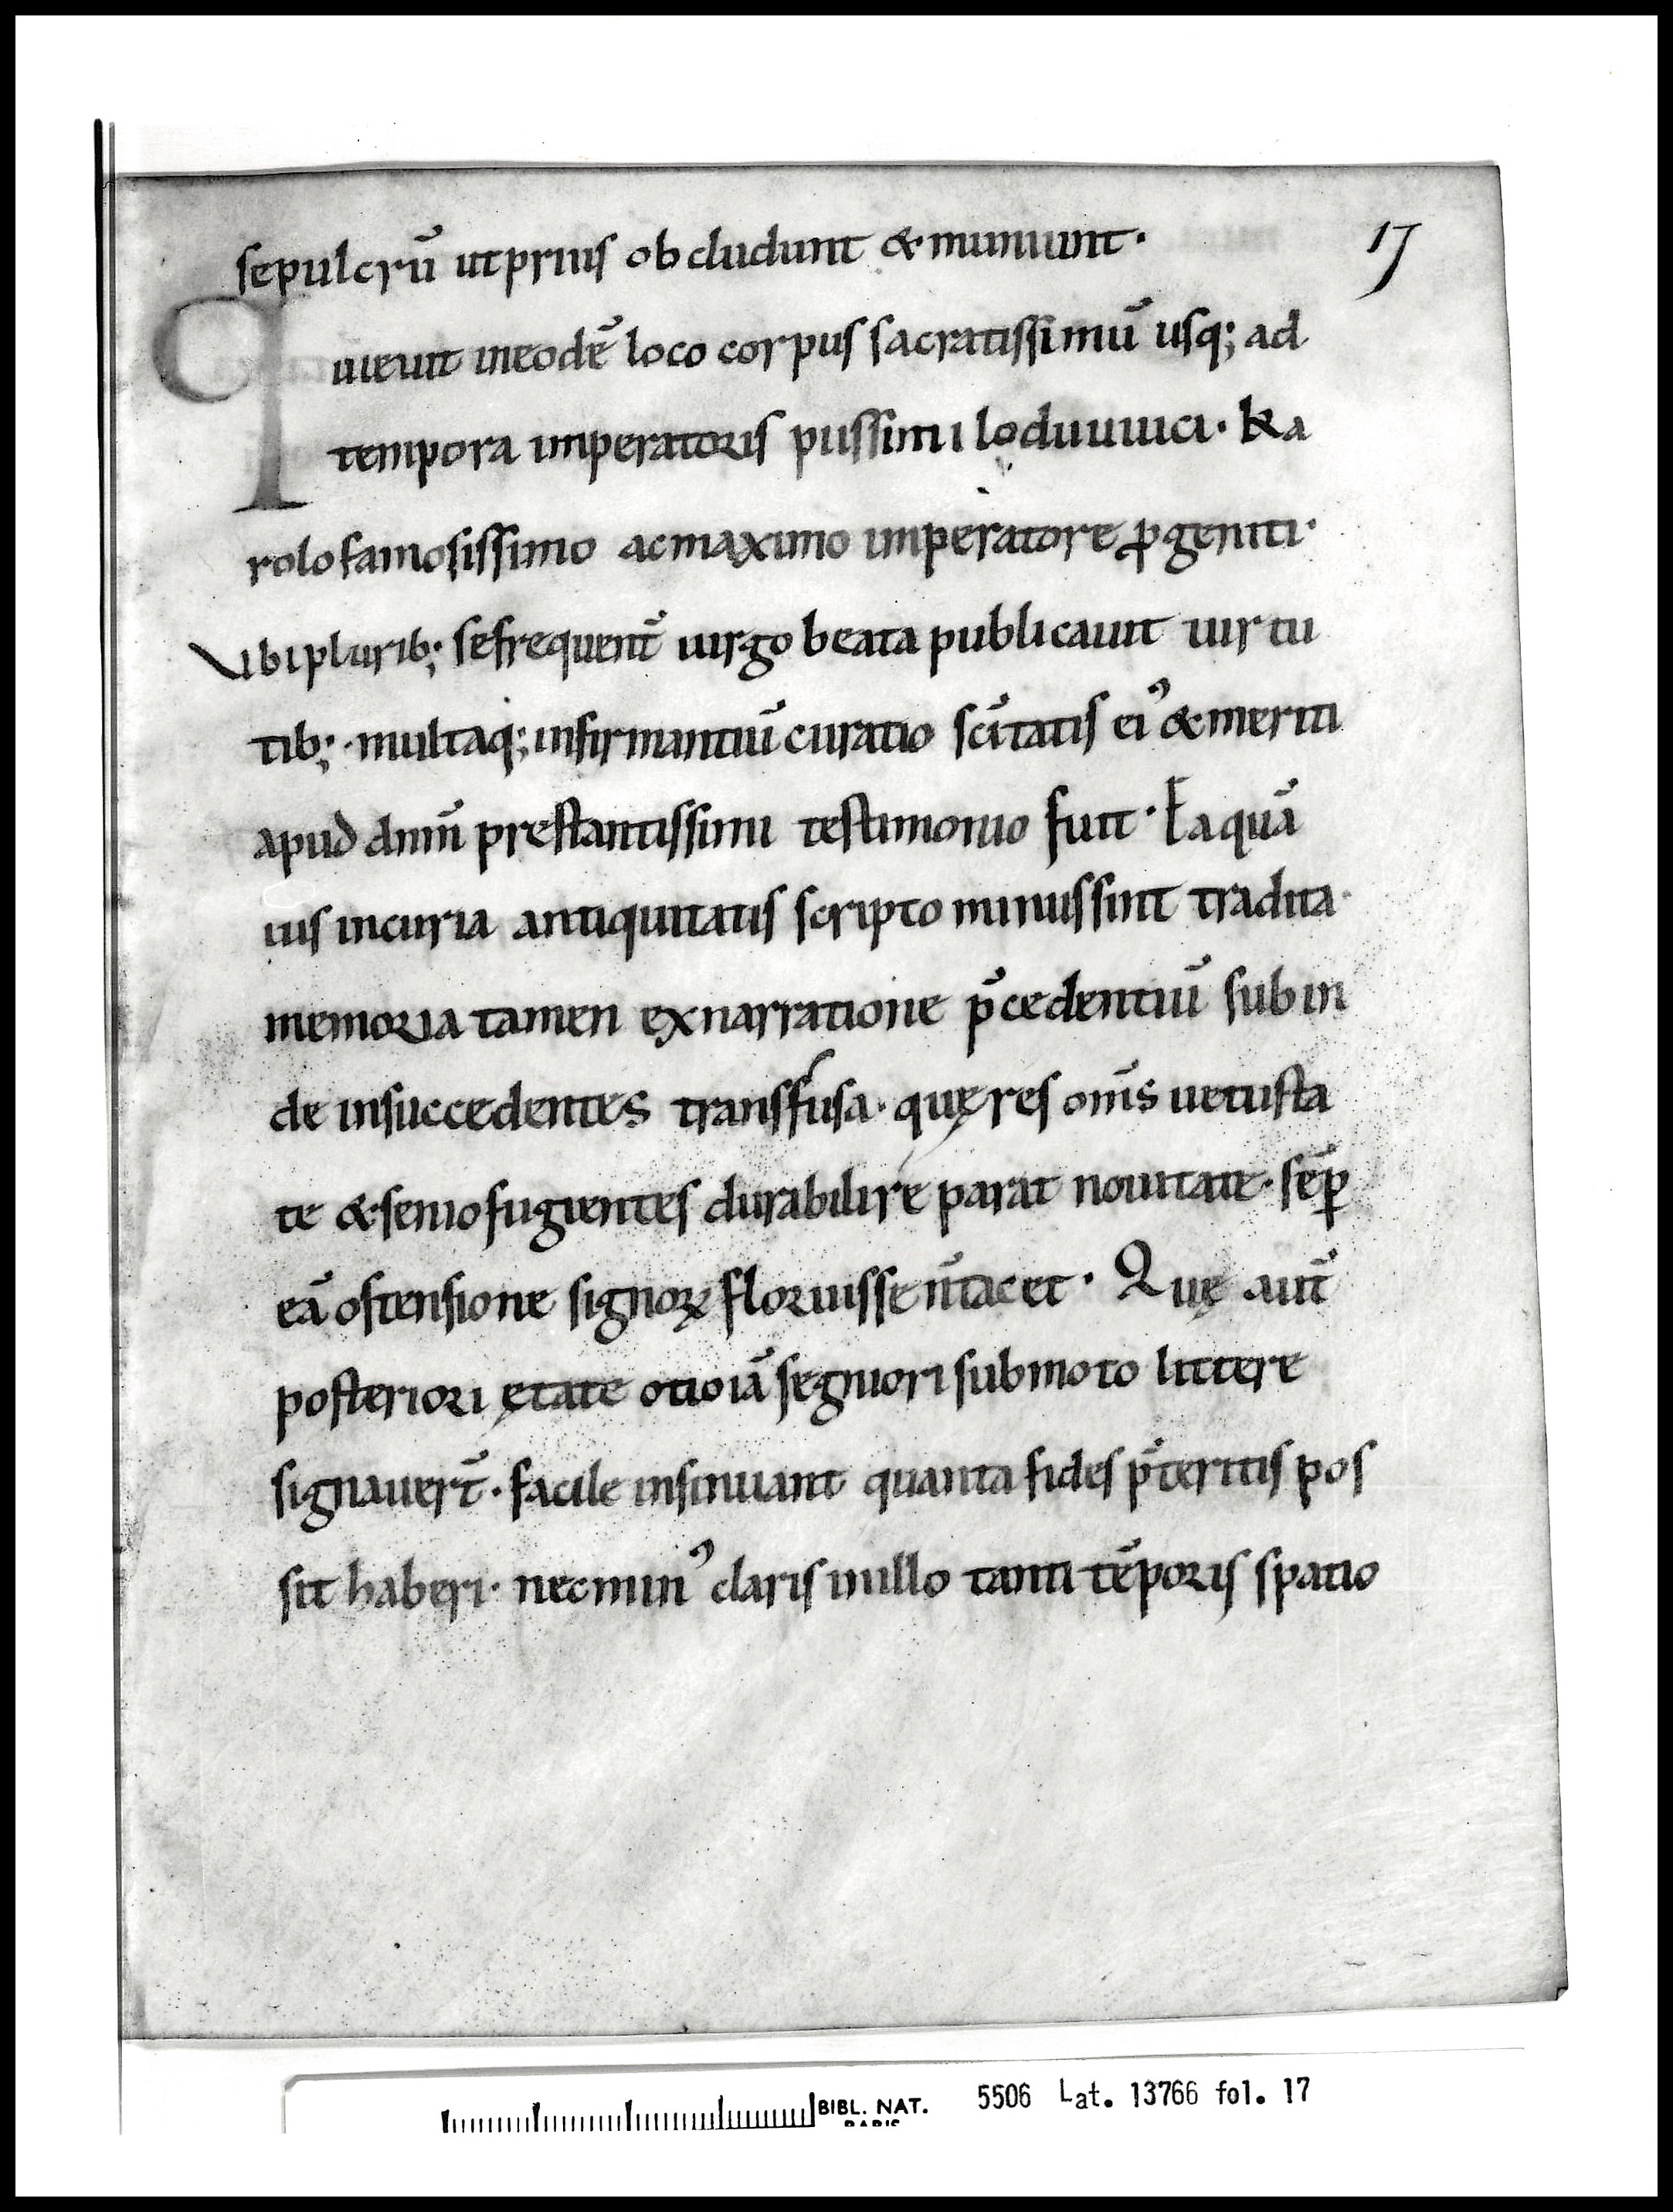 sepulcrū ut prius obcludunt & muniunt·
17
Quieuit in eodē loco corpus sacratissimū usq; ad
tempora imperatoris piissimi loduuuici· Ka
rolo famosissimo ac maximo imperatore ꝓgeniti·
Vbi plurib; se frequent̄ uirgo beata publicauit uirtu
tib;· multaq; infirmantiū curatio sc̄itatis ei᾽ & meriti
apud dnm̄ prestantissimi testimonio fuit· Ea quā
uis incuria antiquitatis scripto minus sint tradita·
memoria tamen ex narratione p̄cedentiū subin
de in succedentes transfusa· quę res om̄s uetusta
te & senio fugientes durabili re parat nouitate· sēp
eā ostensione signoꝝ floruisse n̄ tacet· Quę aut̄
posteriori ętate otio iā segniori submoto littere
signauer̄t· facile insinuant quanta fides p̄teritis pos
sit haberi· nec min᾽ claris in illo tanti tēporis spatio
BIBL. NAT.
PARIS
5506 Lat. 13766 fol. 17